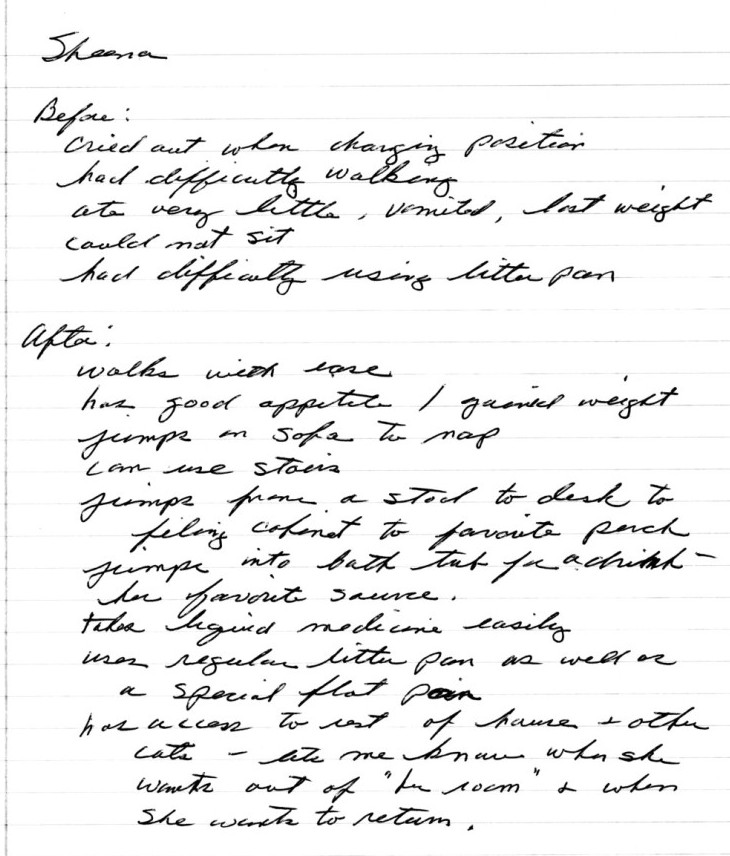 Sheena
Before:
cried out when changing position
had difficulty walking
ate very little, vomited, lost weight
could not sit
had difficulty using litter pan
After:
walks with ease
has good appetite / gained weight
jumps on sofa to nap
can use stairs
jumps from a stool to desk to
filing cabinet to favorite perch
jumps into bath tub for a drink -
her favorite source.
takes liquid medicine easily
uses regular litter pan as well as
a special flat pan
has access to rest of house + other
cats - lets me know when she
wants out of "her room" + when
she wants to return.